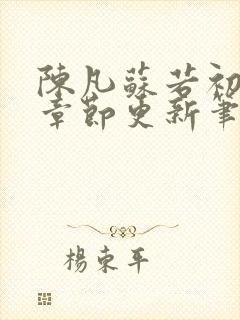 陳凡蘇若初
章節更新筆
楊東平